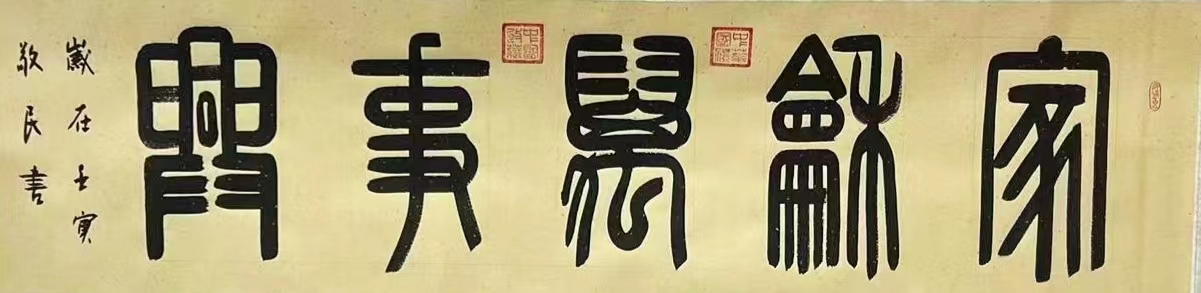 家龢萬事興
歲在壬寅
敬民書